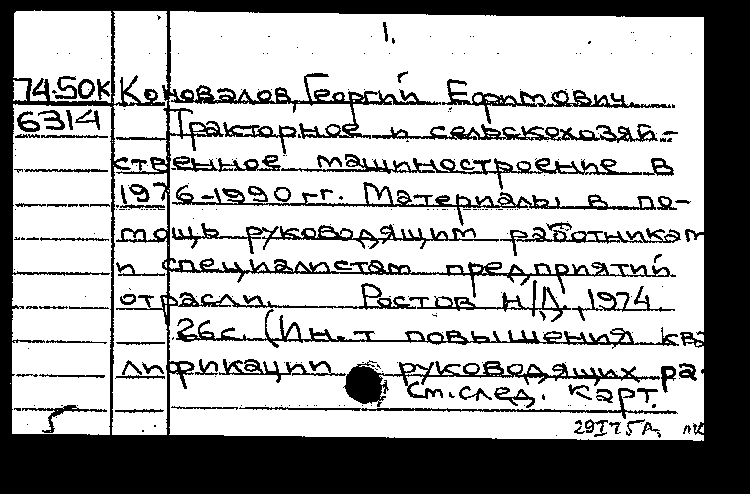 1.
74.50К Коновалов, Георгий Ефимович.
6314 Тракторное и сельскохозяй-
ственное машиностроение в
1976-1990 гг. Материалы в по-
мощь руководящим работникам
и специалистам предприятий
отрасли. Ростов н/Д., 1974.
26с. (Ин-т повышения ква
лификации руководящих ра-
См.след. карт.
29 I 75